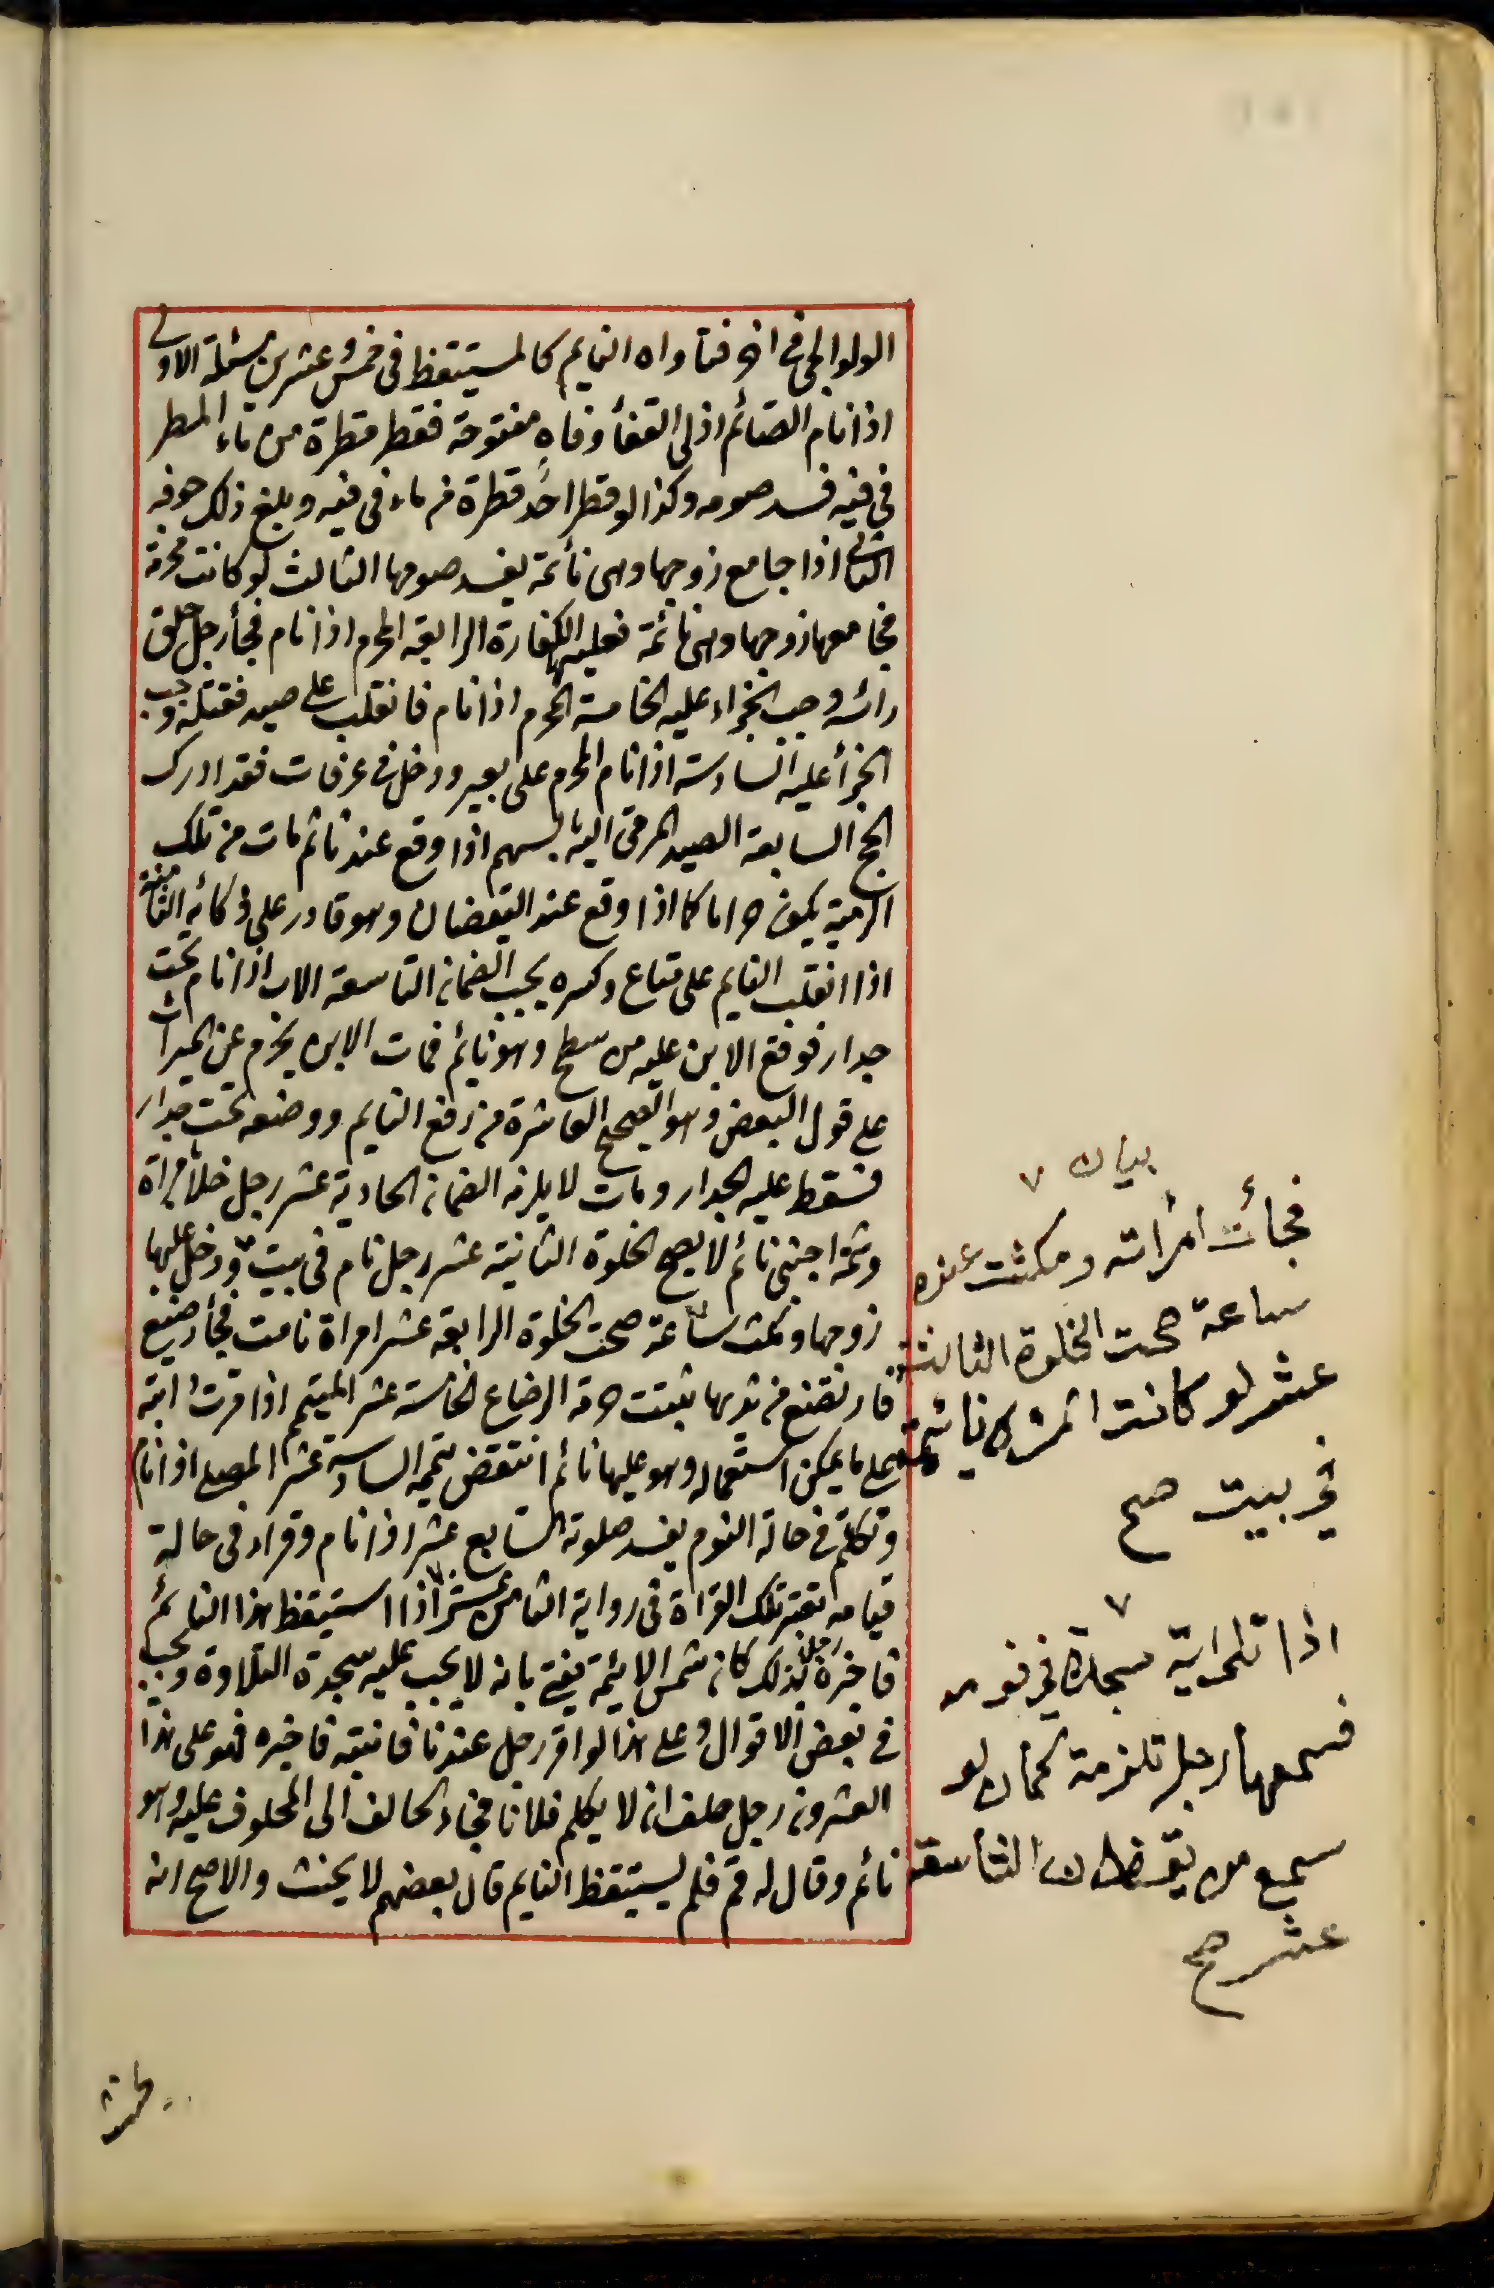 الولوالجى فى اخر فتاواه النايم كالمستيقظ فى خمس وعشرين مسئلة الاولى
اذا نام الصائم اذلى القفأ وفاه مفتوحة فقطر قطرة من ماء المطر
فى فيه فسد صومه وكذا لو قطر احد قطرة من ماء فى فيه وبلغ ذلك جوفه
الثانى اذا جامع زوجها وهى نائمة يفسد صومها الثالث لو كانت محرمة
فجامعها زوجها وهى نائمة فعليها الكفارة الرابعة المحرم اذا نام فجأ رجل حلق
رائسه وجب الجزاء عليه الخامسة المحرم اذا نام فانقلب على صيد فقتله وجب
الجزأ عليه السادسة اذا نام المحرم على بعير ودخل فى عرفات فقد ادرك
الحج السابعة الصيد المرمى اليه بالسهم اذا وقع عند نائم مات من تلك
الرمية يكون حراما كما اذا وقع عند اليقضان وهو قادر على ذكاته الثامنة
اذا انقلب النايم على متاع وكسره يجب الضمان التاسعة الاب اذا نام تحت
جدار فوقع الابن عليه من سطح وهو نايئم فمات الابن يحرم عن الميراث
على قول البعض وهو الصحيح العاشرة من رفع النايم ووضعه تحت جدار
فسقط عليه الجدار ومات لا يلزمه الضمان الحادية عشر رجل خلا بامراة
وثمة اجنبى نائم لا يصح الخلوة الثانية عشر رجل نام فى بيت ودخل عليها
زوجها ومكث ساعة صحت الخلوة الرابعة عشر امراة نامت فجأ رضيع
فارتضع من ثديها يثبت حرمة الرضاع الخامسة عشر المتيمم اذا مرت دابته
على ما يمكن استعماله وهو عليها نائم انتقض تيممه السادسة عشر المصلى اذا نام
وتكلم فى حالة النوم يفسد صلوته السابع عشر اذا نام وقراء فى حالة
قيامه تعتبر تلك القراة فى رواية الثامن عشر اذا استيقظ هذا النائم
فاخبره رجل بذلك كان شمس الايئمة يفتى بانه لا يجب عليه سجدة التلاوة ويجب
فى بعض الاقوال وعلى هذا لو اقر رجل عند نا فانتبه فاخبره فهو على هذا
العشرون رجل حلف ان لا يكلم فلانا فجاء الحالف الى المحلوف عليه وهو
نائم وقال له قم فلم يستيقظ النايم قال بعضهم لا يحنث والاصح انه
بيان ٧
فجأئت امرأته ومكثت عنده
ساعة صحت الخلوة الثالثة
عشر لو كانت المرأة نايئمة
فى بيت صح
٧
اذا تلى اية سجدة فى نومه
فسمعها رجل تلزمه كما لو
سمع من يقضان التاسعة
عشر صح
يحنث